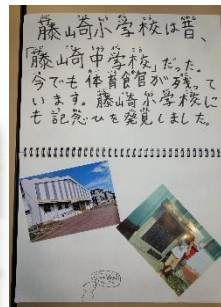 藤崎小学校は昔、
「藤崎中学校」だった。
今でも体育館が残って
います。藤崎小学校に
も記念ひを発見しました。